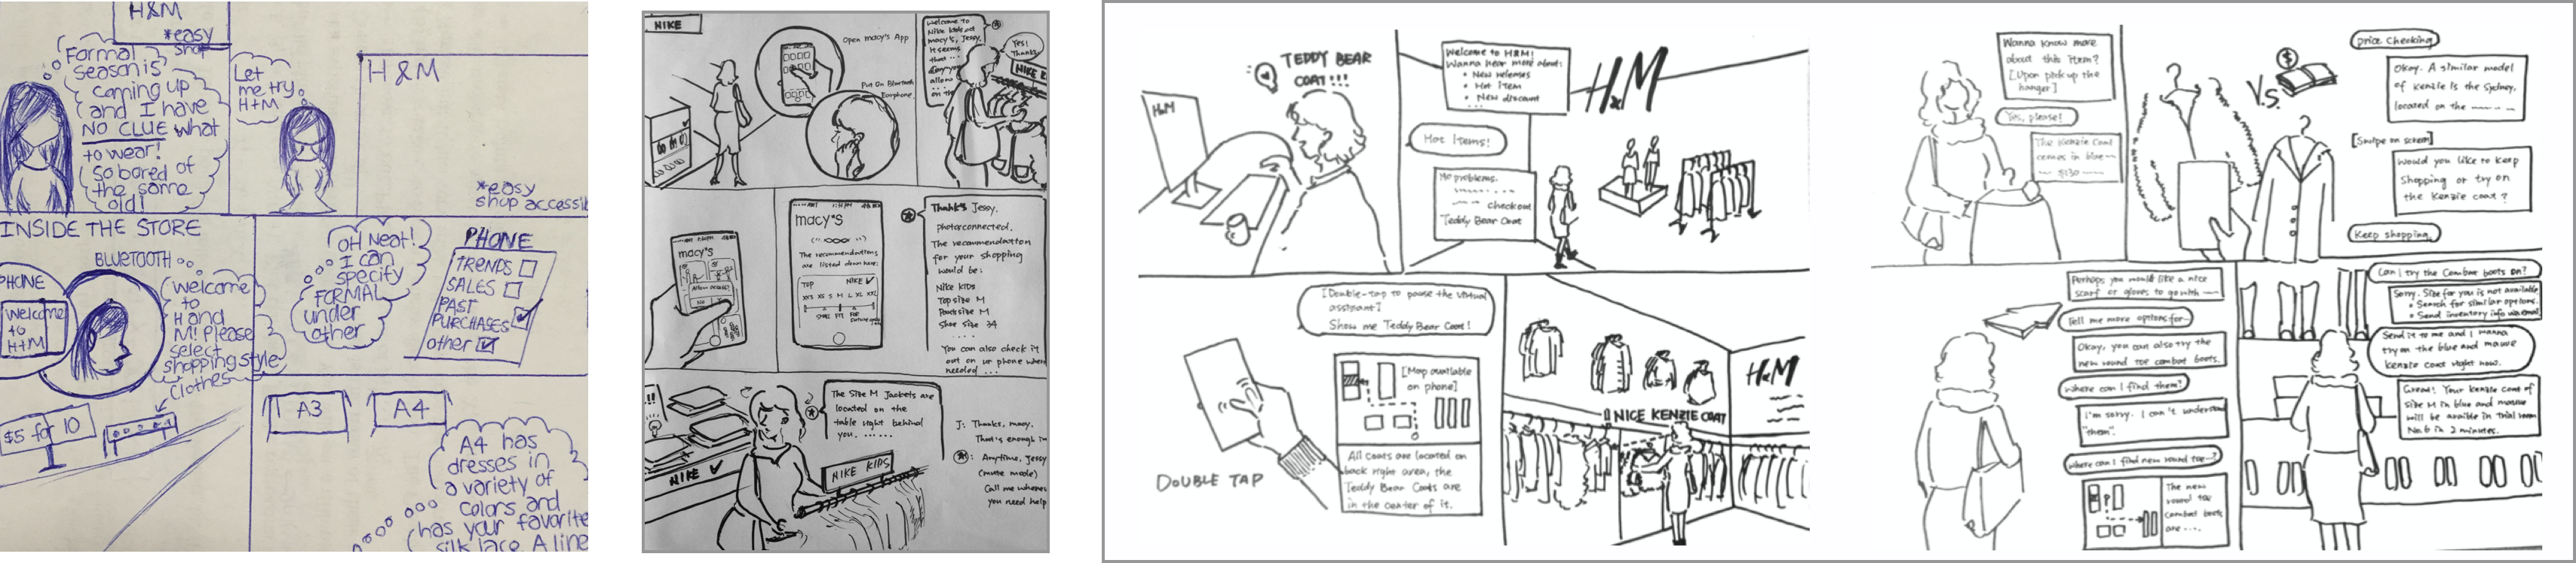 H&M
*easy
shop
Formal
Season is
coming up
and I have
NO CLUE what
to wear!
So bored of
the same
old!
Let
me try
H+M
H&M
*easy
shop accessib
INSIDE THE STORE
BLUETOOTH
PHONE
Welcome
to
H+M
Welcome
to
H and
M! Please
select
shopping style
Clothes
$5 for 10
OH Neat!
I can
specify
FORMAL
under
other
PHONE
TRENDS
SALES
PAST
PURCHASES
other
A3
A4
A4 has
dresses in
a variety of
colors and
has your favorite
silk lace A line
NIKE
Open macy's App
Put On Bluetooth
Earphone.
Welcome to
Nike kids at
macy's, Jessy.
It seems
that ...
allow
on th
Yes!
Thanks
NIKE K
macy's
Allow access?
No
macy's
The recommendations
are listed down here:
TOP
NIKE
XXS XS S M L XL XXL
Thanks Jessy.
photo connected.
The recommendation
for your shopping
would be:
Nike kids
Top size M
Pants size M
Shoe size 34
....
You can also check it
out on ur phone when
needed ...
The size M Jackets are
located on the
table right behind
you. ......
NIKE
NIKE KIDS
J: Thanks, macy.
That's enough in
: Anytime, Jessy
(mute mode)
Call me whenev
you need help
H&M
TEDDY BEAR
COAT!!!
Welcome to H&M!
Wanna hear more about:
• New releases
• Hot Item
• New discount
...
Hot Items!
No problems.
checkout
Teddy Bear Coat
H&M
[Double-tap to pause the virtual
assistant]
Show me Teddy Bear Coat!
DOUBLE TAP
[Map available
on phone]
All coats are located on
back right area, the
Teddy Bear Coats are
in the center of it.
H&M
NICE KENZIE COAT
Wanna know more
about this item?
[Upon pick up the
hanger]
Yes, please!
The Kenzie Coat
comes in blue
$130
V.S.
$
price checking
Okay. A similar model
of Kenzie is the Sydney.
located on the
[Swipe on screen]
Would you like to keep
shopping or try on
the Kenzie coat?
Keep shopping.
Perhaps you would like a nice
scarf or gloves to go with
Tell me more options for
Okay, you can also try the
new round toe combat boots.
Where can I find them?
I'm sorry. I can't understand
"them".
Where can I find new round toe
The new
round toe
combat boots
are ....
Can I try the Combat boots on?
Sorry. Size for you is not available
• Search for similar options.
• Send inventory info via email
Send it to me and I wanna
try on the blue and mauve
Kenzie coat right now.
Great! Your Kenzie coat of
size M in blue and mauve
will be availble in Trial room
No.6 in 2 minutes.